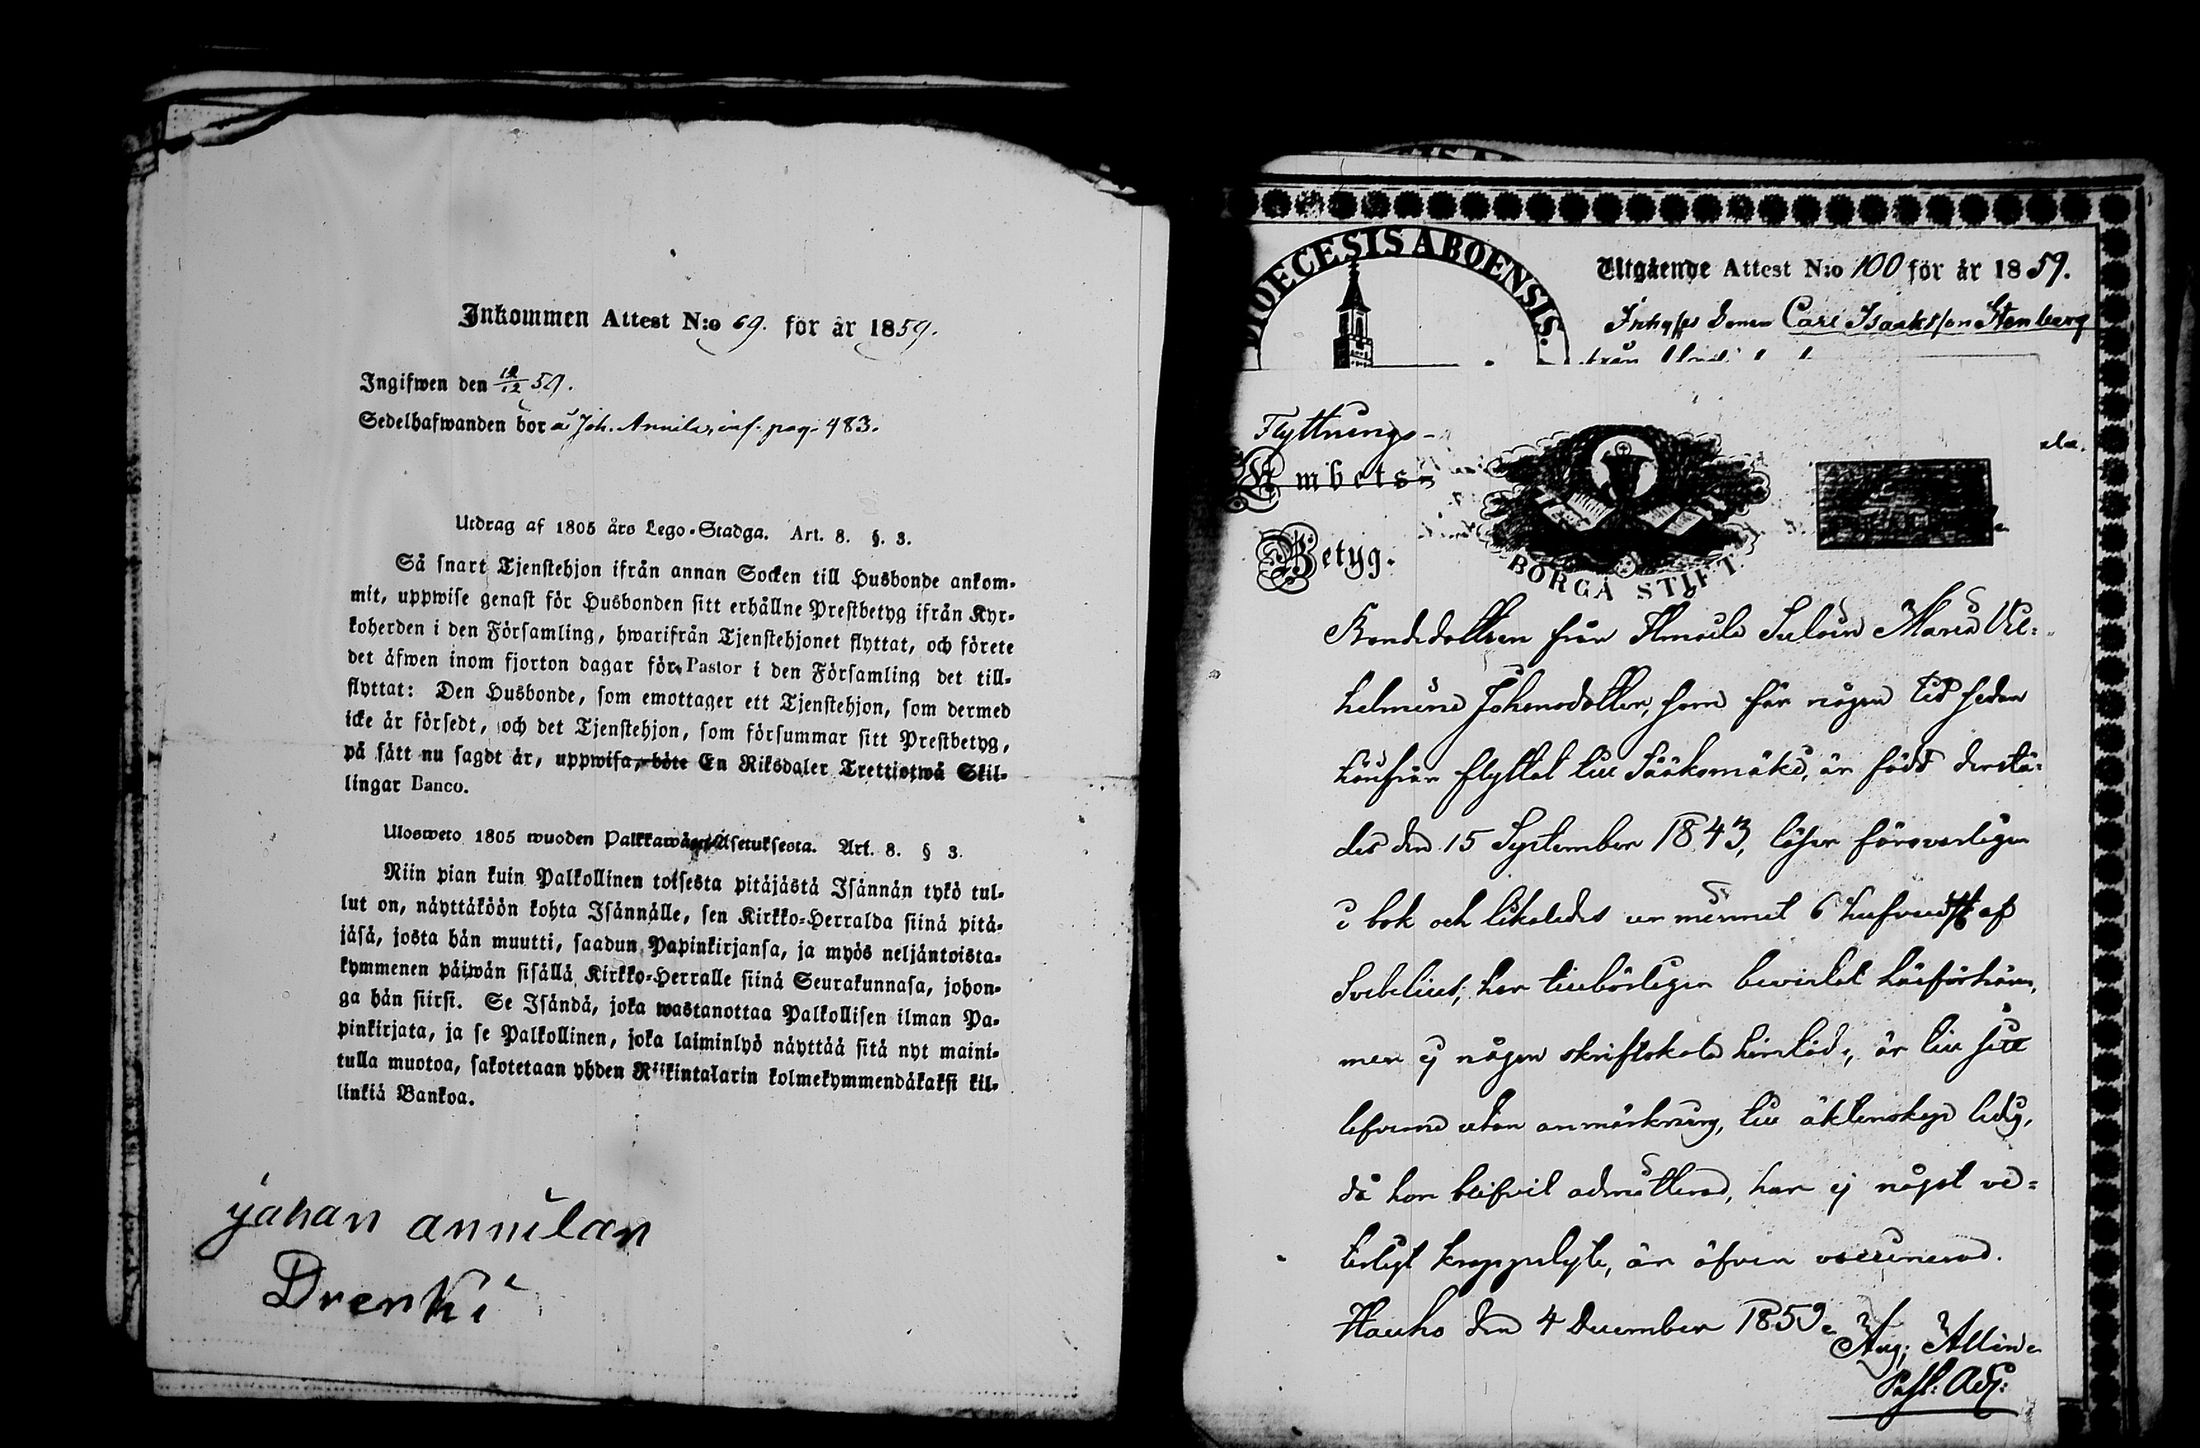 Inkommen Attest N:o 69. för år 1859.
Ingifwen den 12/12 59.
Sedelhafwanden bor å Joh. Annila, inf. pag. 483.
Utdrag af 1805 års Lego-Stadga. Art. 8. §. 3.
Så snart Tjenstehjon ifrån annan Socken till Husbonde ankom-
mit, uppwise genast för Husbonden sitt erhållne Prestbetyg ifrån Kyr-
koherden i den Församling, hwarifrån Tjenstehjonet flyttat, och förete
det äfwen inom fjorton dagar för Pastor i den Församling det till-
flyttat: Den Husbonde, som emottager ett Tjenstehjon, som dermed
icke är försedt, och det Tjenstehjon, som försummar sitt Prestbetyg,
på sätt nu sagdt är, uppwisa, böte En Riksdaler Trettiotwå Skil-
lingar Banco.
Ulosweto 1805 wuoden Palkkawäen-Asetuksesta. Art. 8. § 3.
Niin pian kuin Palkollinen toisesta pitäjästä Isännän tykö tul-
lut on, näyttäköön kohta Isännälle, sen Kirkko-Herralda siinä pitä-
jäsä, josta hän muutti, saadun Papinkirjansa, ja myös neljäntoista-
kymmenen päiwän sisällä Kirkko-Herralle siinä Seurakunnasa, johon-
ga hän siirsi. Se Isändä, joka wastanottaa Palkollisen ilman Pa-
pinkirjata, ja se Palkollinen, joka laiminlyö näyttää sitä nyt maini-
tulla muotoa, sakotetaan yhden Riikintalarin kolmekymmendäkaksi kil-
linkiä Bankoa.
johan annilan
Drenki
DIOECESIS ABOENSIS.
Utgående Attest N:o 100 för år 1859.
Sonen Carl Isaksson Stenberg
från
Flyttnings-
Ambets-
Betyg.
BORGÅ STIFT.
Bondedottren från Ilmoila Suloin Maria Vil-
helmina Johansdotter, som för någon tid sedan
härifrån flyttat till Sääksmäki, är född derstä-
des den 15 September 1843, läser försvarligen
i bok och likaledes ur minnet 6 hufvudst af
Svebelius; har tillbörligen bevistat läsförhören,
men ej någon skriftskola härstäd., är till sitt
lefverne utan anmärkning, till äktenskap ledig,
då hon blifvit admitterad, har ej något ve-
terligt kroppslyte, är äfven vaccinerad.
Hauho den 4 December 1859.
Aug. Allén
Past: Adj: